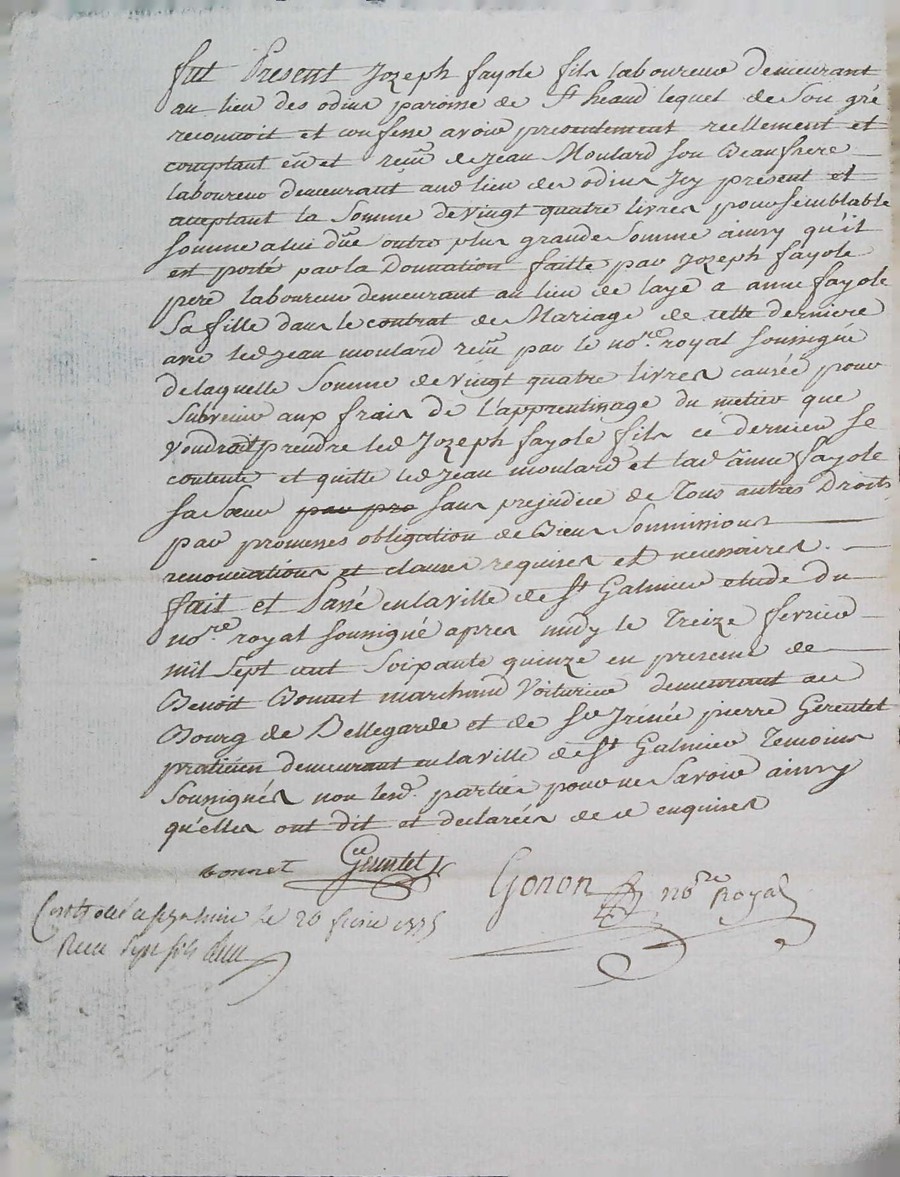 fut Present Jozeph fayole fils laboureur demeurant
au lieu des odins paroisse de St heand lequel de son gré
reconnoit et confesse avoir presentement reellement et
comptant eu et reçu de Jean Moulard son Beaufrere
laboureur demeurant aud lieu des odins Icy present et
acceptant la Somme de vingt quatre livres pour semblable
somme a lui düe outre plus grande Somme ainsy qu'il
est porté par la Donnation faitte par Jozeph fayole
pere laboureur demeurant au lieu de laye a anne fayole
Sa fille dans le contrat de Mariage de cette derniere
avec led Jean moulard reçu par le no.re royal soussigné
de laquelle Somme de vingt quatre livres causée pour
Subvenir aux frais de l'apprentissage du metier que
voudroit prendre led Jozeph fayole fils ce dernier se
contente et quitte led Jean moulard et lad anne fayole
sa Sœur par pro sans prejudice de Tous autres Droits
par promesses obligation de Biens Soumissions
renonciations et clauses requises et necessaires.
fait et Passé en la ville de St Galmier etude du
no.re royal soussigné apres midy le Treize fevrier
mil Sept cent Soixante quinze en presence de
Benoit Bonnet marchand Voiturier demeurant au
Bourg de Bellegarde et de Sr Irénée pierre Gerentet
praticien demeurant en la ville de St Galmier Temoins
Soussignés non lesd. parties pour ne Savoir ainsy
qu'elles ont dit et declarées de ce enquises
bonnet Gerentet
Gonon no.re Royal
Controllé a le 26 fevrier 1775
Reçu Sept sols